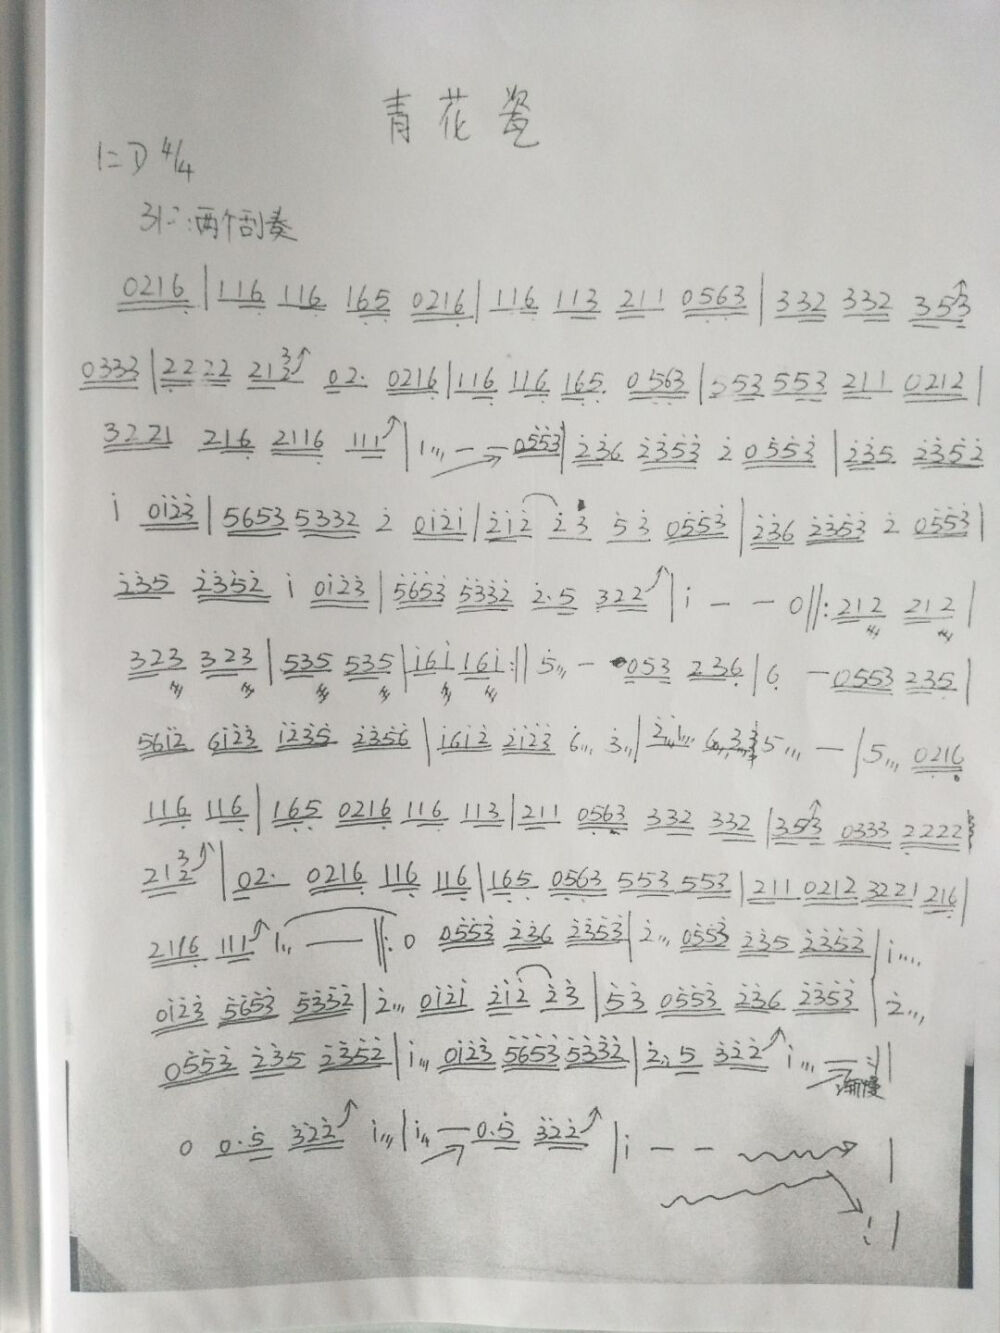 青花瓷
1=D 4/4
引子:两个刮奏
0216 | 116 116 165 0216 | 116 113 211 0563 | 332 332 353
0333 | 22 22 212 3 02· 0216 | 116 116 165 0563 | 553 553 211 0212 |
3221 216 2116 111 | 1 — — 0553 | 236 2353 2 0553 | 235 2352
1 0123 | 5653 5332 2 0121 | 212 23 53 0553 | 236 2353 2 0553 |
235 2352 1 0123 | 5653 5332 2·5 322 | 1 — — 0 ‖: 212 212 |
323 323 | 535 535 | 161 161 :‖ 5 — 053 236 | 6 — 0553 235 |
5612 6123 1235 2356 | 1612 2123 6 3 | 2 1 6 3 3 5 — | 5 0216
116 116 | 165 0216 116 113 | 211 0563 332 332 | 353 0333 2222
212 3 | 02· 0216 116 116 | 165 0563 553 553 | 211 0212 3221 216 |
2116 111 1 — ‖: 0 0553 236 2353 | 2 0553 235 2352 | 1
0123 5653 5332 | 2 0121 212 23 | 53 0553 236 2353 | 2
0553 235 2352 | 1 0123 5653 5332 | 2·5 322 1 — :‖
渐慢
0 0·5 322 1 | 1 — 0·5 322 | 1 — — |
:|